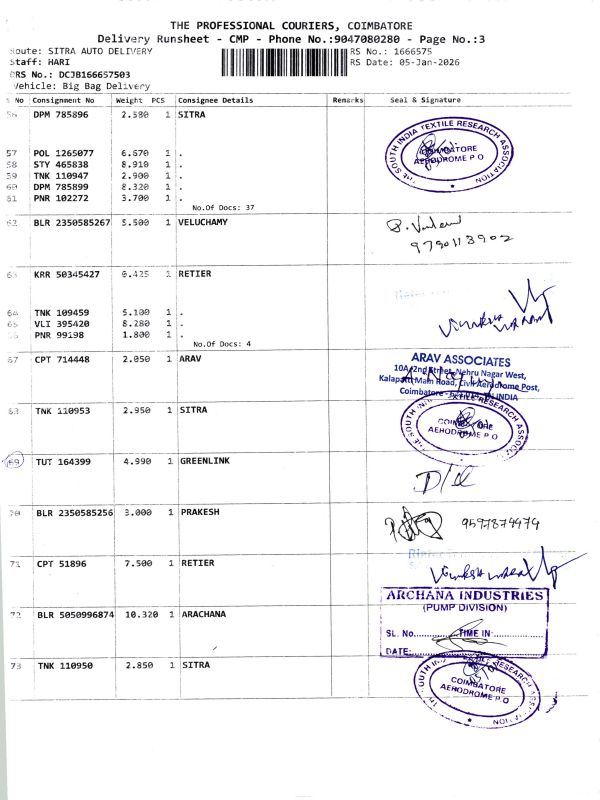 THE PROFESSIONAL COURIERS, COIMBATORE
Delivery Runsheet - CMP - Phone No.:9047080280 - Page No.:3
Route: SITRA AUTO DELIVERY RS No.: 1666575
Staff: HARI RS Date: 05-Jan-2026
DRS No.: DCJB166657503
Vehicle: Big Bag Delivery
S No Consignment No Weight PCS Consignee Details Remarks Seal & Signature
56 DPM 785896 2.580 1 SITRA
THE SOUTH INDIA TEXTILE RESEARCH ASSOCIATION
COIMBATORE
AERODROME P O
57 POL 1265077 6.670 1 .
58 STY 465838 8.910 1 .
59 TNK 110947 2.900 1 .
60 DPM 785899 8.320 1 .
61 PNR 102272 3.700 1 .
No.Of Docs: 37
62 BLR 2350585267 5.500 1 VELUCHAMY
9790113902
63 KRR 50345427 0.425 1 RETIER
64 TNK 109459 5.100 1 .
65 VLI 395420 8.280 1 .
66 PNR 99198 1.800 1 .
No.Of Docs: 4
67 CPT 714448 2.050 1 ARAV
ARAV ASSOCIATES
10A/2nd Street, Nehru Nagar West,
Kalapatti Main Road, Civil Aerodrome Post,
Coimbatore - INDIA
68 TNK 110953 2.950 1 SITRA
TEXTILE RESEARCH
COIMBATORE
AERODROME P O
69 TUT 164399 4.990 1 GREENLINK
70 BLR 2350585256 3.000 1 PRAKESH
9597879979
71 CPT 51896 7.500 1 RETIER
72 BLR 5050996874 10.320 1 ARACHANA
ARCHANA INDUSTRIES
(PUMP DIVISION)
SL. No. TIME IN:
DATE:
73 TNK 110950 2.850 1 SITRA
COIMBATORE
AERODROME P O